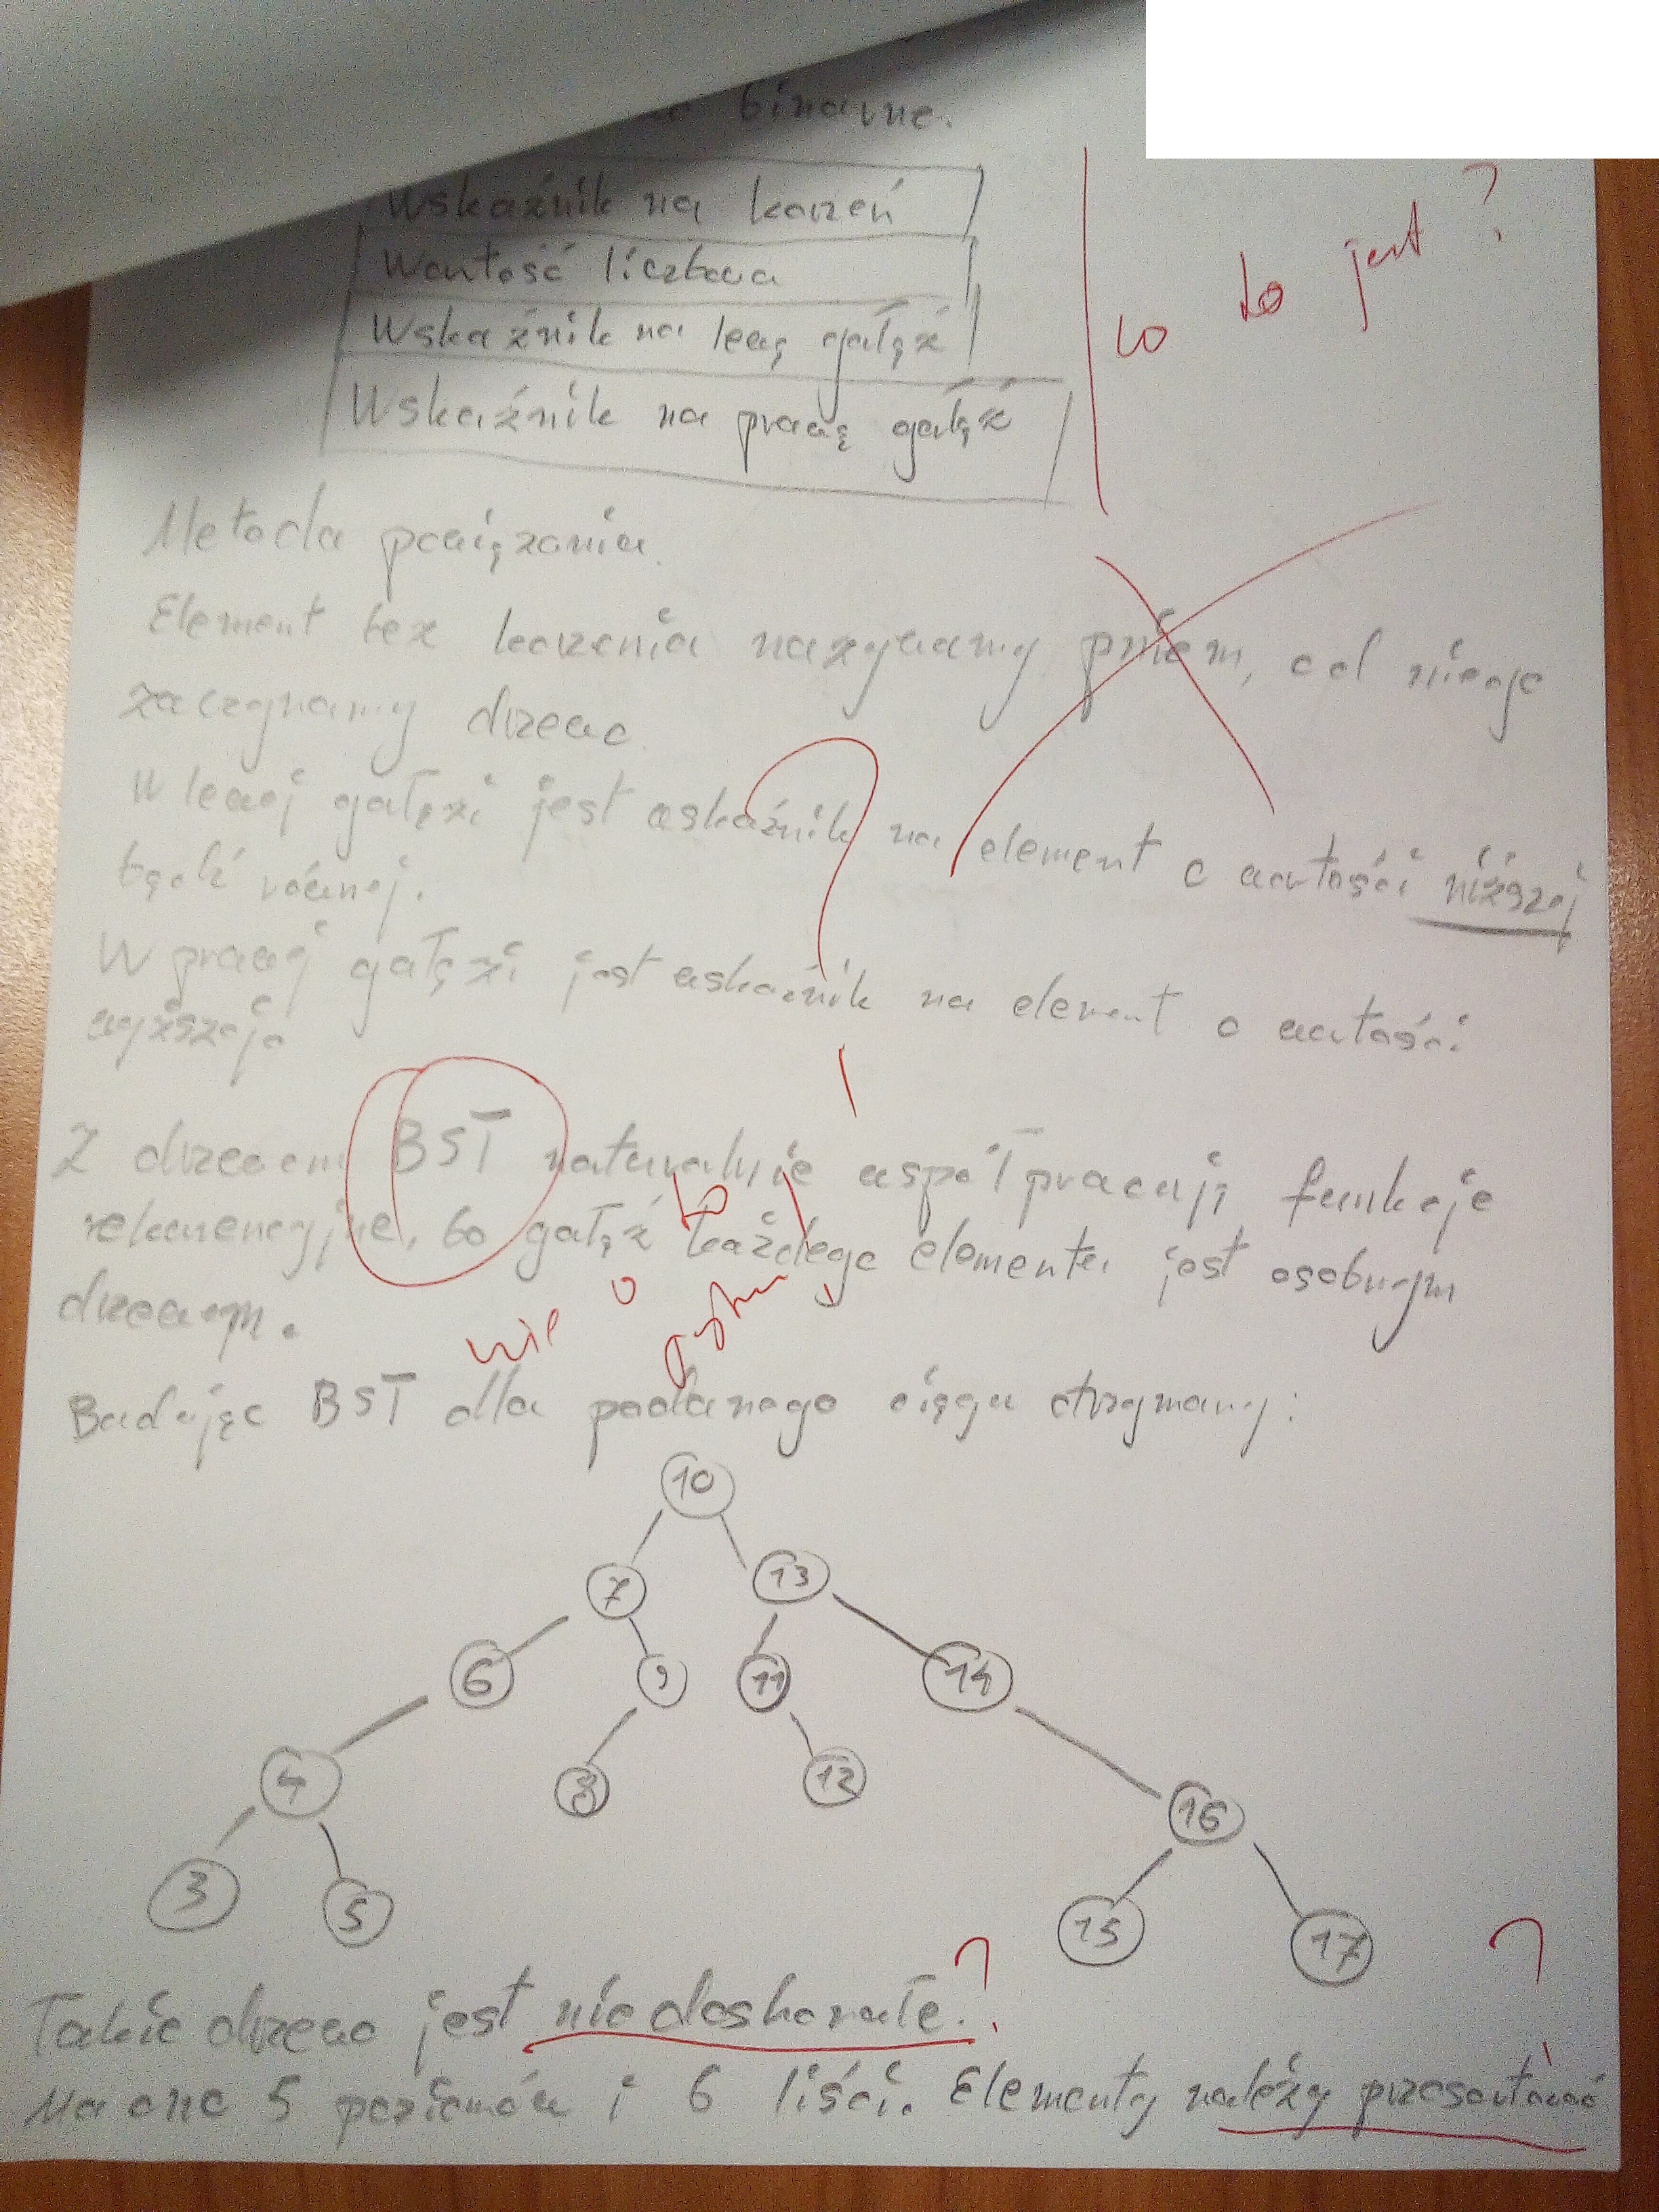 binarne.
Wskaźnik na korzeń
Wartość liczbowa
Wskaźnik na lewą gałąź
Wskaźnik na prawą gałąź
co to jest ?
Metoda powiązania.
Element bez korzenia nazywamy pniem, od niego
zaczynamy drzewo.
W lewej gałęzi jest wskaźnik na element o wartości niższej
bądź równej.
W prawej gałęzi jest wskaźnik na element o wartości
wyższej.
?
Z drzewem BST naturalnie współpracują funkcje
rekurencyjne, bo gałąź każdego elementu jest osobnym
drzewem.
nie o to pytam !
Badając BST dla podanego ciągu otrzymamy:
10
7 13
6 9 11 14
4 8 12 16
3 5 15 17
Takie drzewo jest niedoskonałe. ?
Ma ono 5 poziomów i 6 liści. Elementy należy przesortować ?